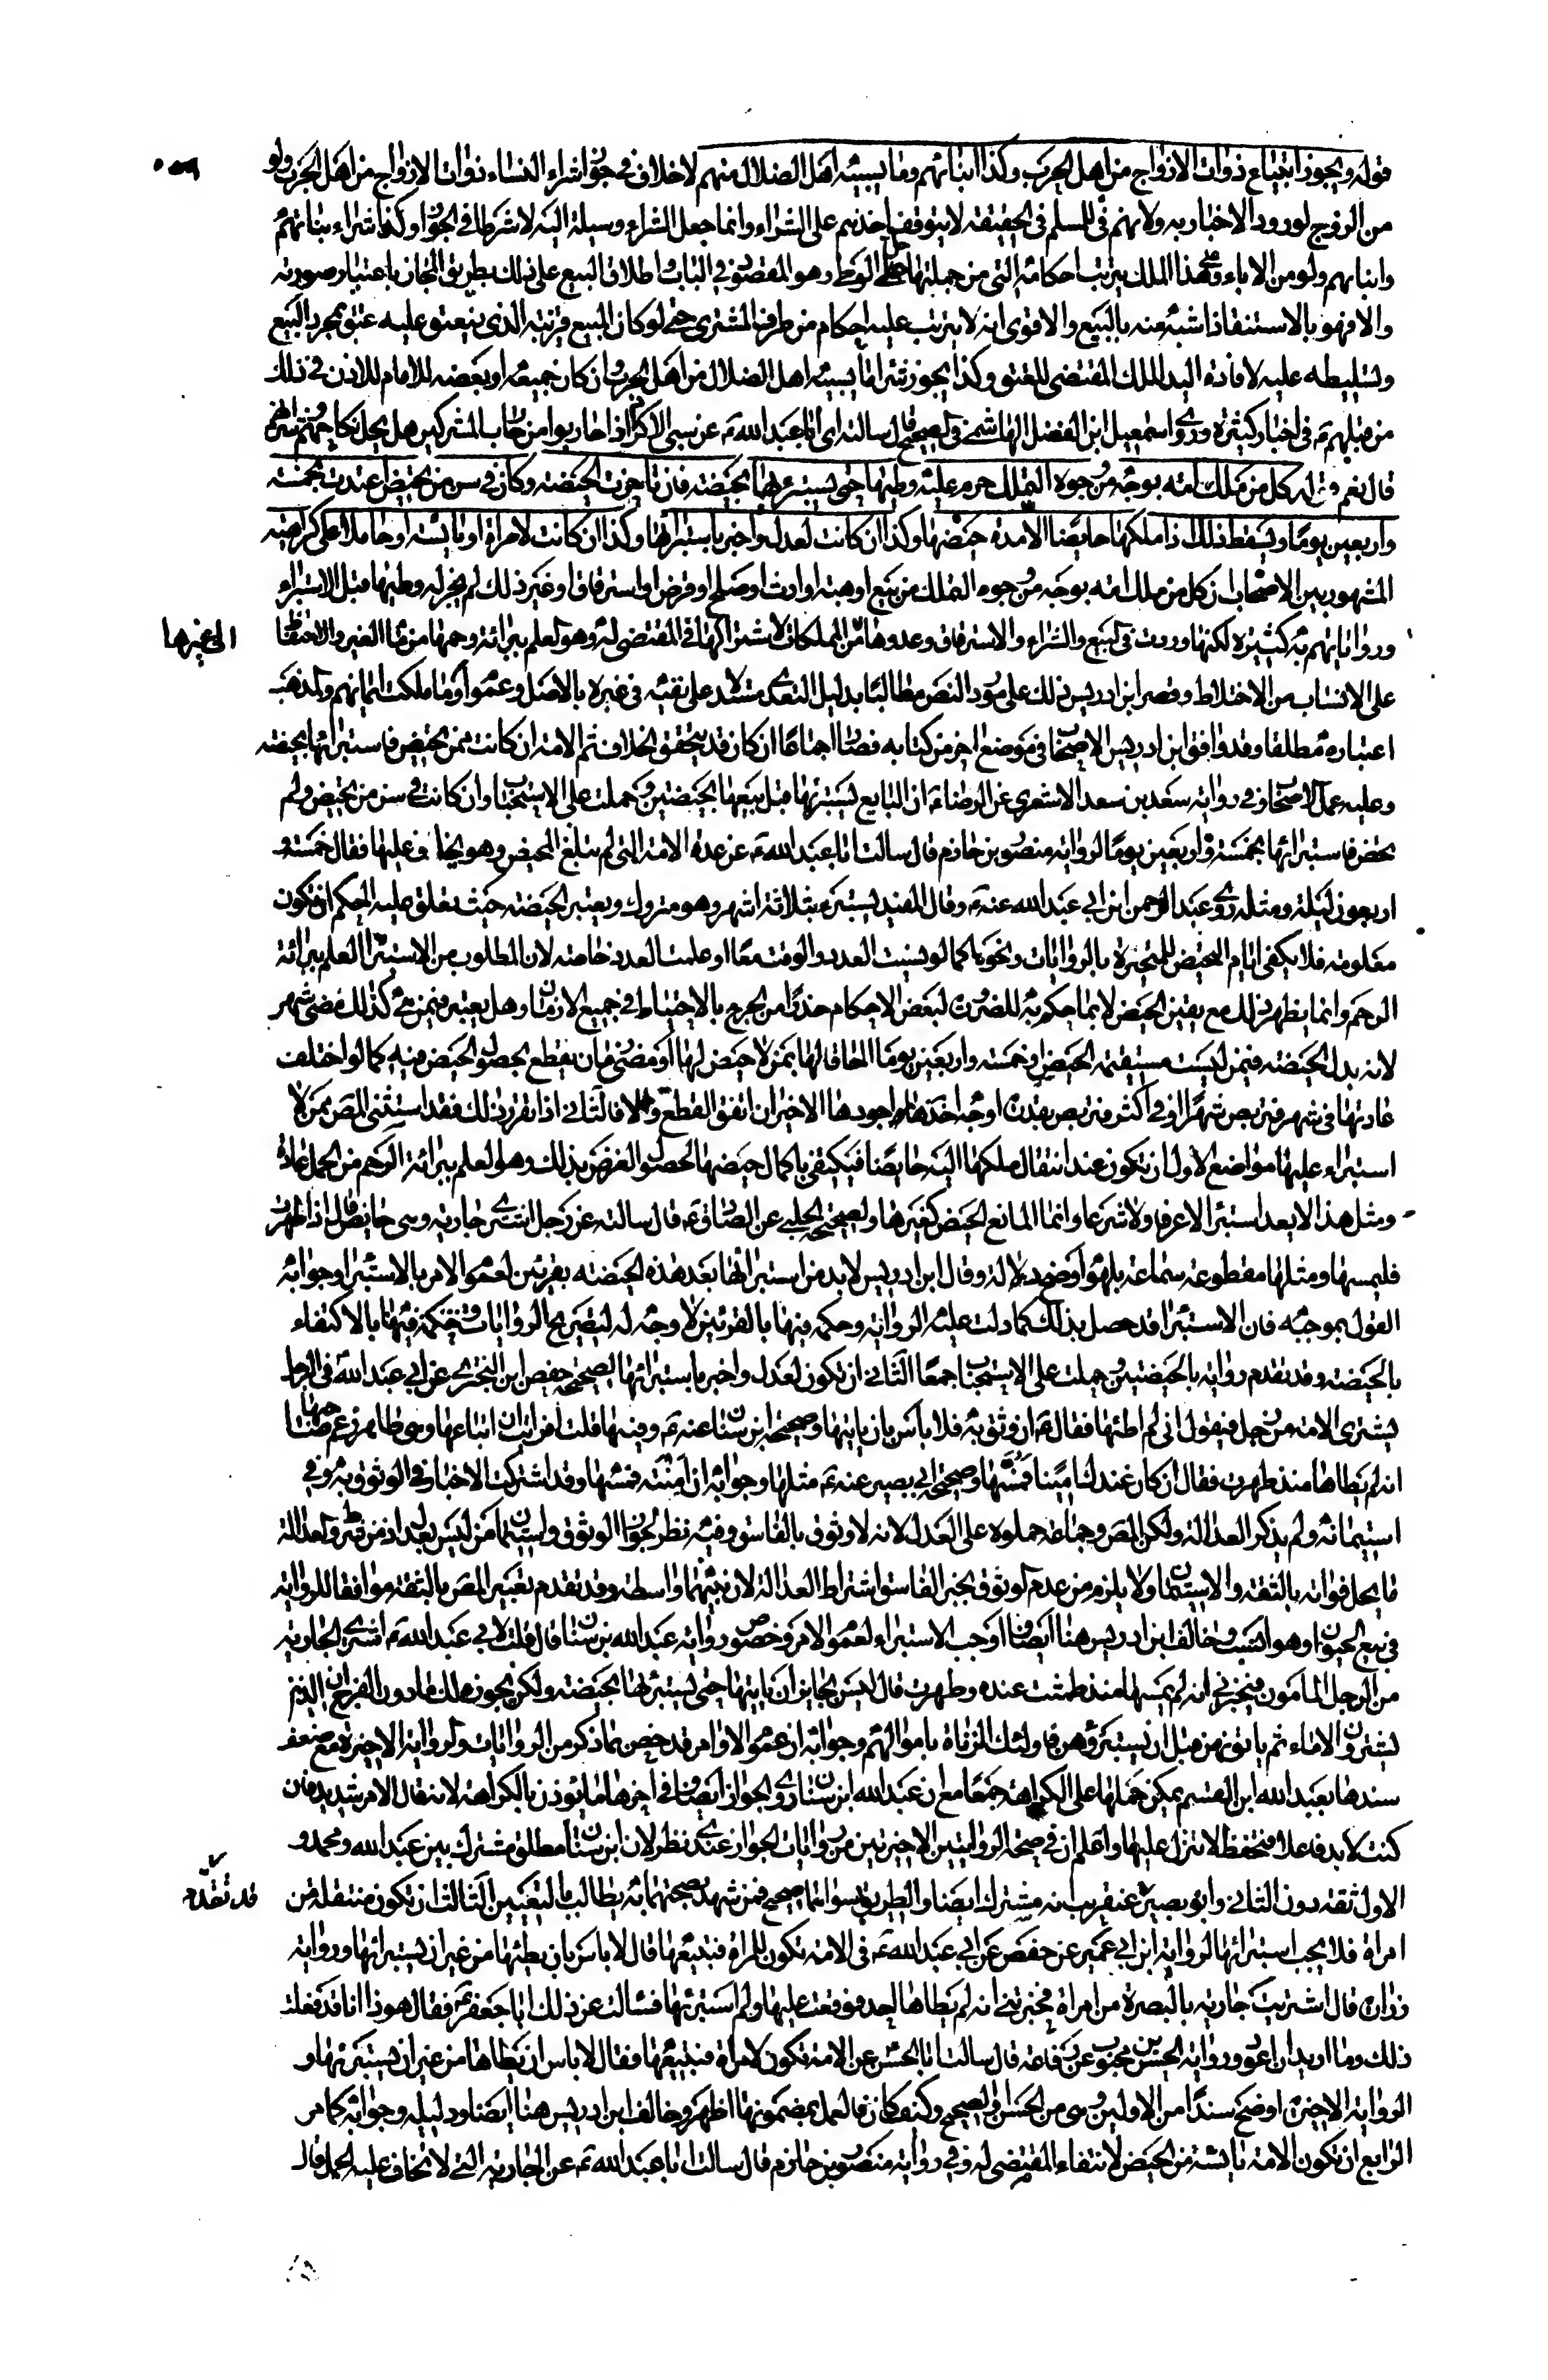 قوله ويجوز ابتياع ذوات الازواج من اهل الحرب وكذا ابنائهم وما يسبيه اهل الضلال منهم لا خلاف في جواز شراء النساء ذوات الازواج من اهل الحرب ولو
من الزوج لورود الاخبار به ولانهم فئ للمسلم في الحقيقة لا يتوقف اخذهم على الشراء وانما جعل الشراء وسيلة اليه لا شرطا في الجواز وكذا شراء بناتهم
وابنائهم ولو من الاباء وعلى هذا الملك يترتب احكامه التي من جملتها حل الوطى وهو المقصود في الباب واطلاق البيع على ذلك بطريق المجاز باعتبار صورته
والا فهو بالاستنقاذ اشبه منه بالبيع والاقوى انه لا يترتب عليه احكام من طرف المشترى حتى لو كان المبيع قريبه الذي ينعتق عليه عتق بمجرد البيع
وتسليطه عليه لافادة اليد الملك المقتضى للعتق وكذا يجوز شراء ما يسبيه اهل الضلال من اهل الحرب وان كان جميعه او بعضه للامام للاذن في ذلك
من قبلهم ع في اخبار كثيرة وروى اسمعيل ابن الفضل الهاشمي في الصحيح قال سالت ابا عبد الله ع عن سبى الاكراد اذا حاربوا من حارب المشركين هل يحل نكاحهم وشرائهم
قال نعم قوله كل من ملك امة بوجه من وجوه التملك حرم عليه وطيها حتى يستبرءها بحيضة فان تاخرت الحيضة وكان في سن من تحيض اعتدت بخمسة
واربعين يوما ويسقط ذلك اذا ملكها حايضا الا مدة حيضها وكذا ان كانت لعدل واخبر باستبرائها وكذا ان كانت لامراة او يائسة او حاملا على كراهية
المشهور بين الاصحاب ان كل من ملك امة بوجه من وجوه التملك من بيع او هبة او ارث او صلح او قرض او استرقاق او غير ذلك لم يجز له وطيها قبل الاستبراء
ورواياتهم به كثيرة لكنها وردت في البيع والشراء والاسترقاق وعدوها الى غيرها من المملكات لاشتراكها في المقتضى له وهو العلم ببرائة رحمها من ماء الغير والاحتفاظ
على الانساب من الاختلاط وقصر ابن ادريس ذلك على مورد النص مطالبا بدليل التعدى مستدلا على نفيه في غيره بالاصل وعموم او ما ملكت ايمانهم والمذهب
اعتباره مطلقا وقد وافق ابن ادريس الاصحاب في موضع اخر من كتابه فصار اجماعا ان كان قد يتحقق الخلاف ثم الامة ان كانت ممن تحيض فاستبرائها بحيضة
وعليه عمل الاصحاب وفي رواية سعد بن سعد الاشعرى عن الرضا ع ان البايع يستبرئها قبل بيعها بحيضتين وحملت على الاستحباب وان كانت في سن من تحيض ولم
تحض فاستبرائها بخمسة واربعين يوما لرواية منصور بن حازم قال سالت ابا عبد الله ع عن عدة الامة التي لم تبلغ المحيض وهو يخاف عليها فقال خمسة و
اربعون ليلة ومثله روى عبد الرحمن ابن ابي عبد الله عنه ع وقال المفيد تستبرء بثلاثة اشهر وهو متروك ويعتبر الحيضة حيث يعلق عليه الحكم ان تكون
معلومة فلا يكفى ايام التحيض للمتحيرة بالروايات ونحوها كما لو نسيت العدد والوقت معا او علمت العدد خاصة لان المطلوب من الاستبراء العلم ببرائة
الرحم وانما يظهر ذلك مع يقين الحيض لا بما حكم به للضرورة لبعض الاحكام حذرا من الحرج بالاحتياط في جميع الازمان وهل يعتبر فيمن هي كذلك مضى شهر
لانه بدل الحيضة فيمن ليست مستقيمة الحيض او خمسة واربعين يوما الحاقا لها بمن لا حيض لها او مضى زمان يقطع بحصول الحيض فيه كما لو اختلف
عادتها في شهر فتربص شهرا او في اكثر فتربص بقدره اوجه احدها واجودها الاخير ان اتفق القطع والا فالثاني اذا تقرر ذلك فقد استثنى المص ممن لا
استبراء عليها مواضع الاول ان تكون عند انتقال ملكها اليه حايضا فيكتفى باكمال حيضها لحصول الغرض بذلك وهو العلم ببرائة الرحم من الحمل عادة
ومثل هذا لا يعد استبراء لا عرفا ولا شرعا وانما المانع الحيض كغيرها ولصحيحة الحلبي عن الصادق ع قال سالته عن رجل اشترى جارية وهى حايض قال اذا طهرت
فليمسها ومثلها مقطوعة سماعة بل هو اوضح دلالة وقال ابن ادريس لا بد من استبرائها بعد هذه الحيضة بقرئين لعموم الامر بالاستبراء وجوابه
القول بموجبه فان الاستبراء قد حصل بذلك كما دلت عليه الرواية وحكمه فيها بالقرئين لا وجه له لتصريح الروايات وحكمه فيها بالاكتفاء
بالحيضة وقد تقدم رواية بالحيضتين وحملت على الاستحباب جمعا الثاني ان تكون لعدل واخبر باستبرائها لصحيحة حفص ابن البخترى عن ابي عبد الله في الرجل
يشترى الامة من رجل فيقول اني لم اطئها فقال ع ان وثق به فلا باس بان ياتيها وصحيحة ابن سنان عنه ع وفيها قلت افرايت ان ابتاعها وهى طاهر وزعم صاحبها
انه لم يطاها منذ طهرت فقال ان كان عندك امينا فمسها وصحيحة ابي بصير عنه ع مثلها وجوابه ان امنته فمسها وقد اشتركت الاخبار في الوثوق به وفي
استيمانه ولم يذكر العدالة ولكن المص وجماعة حملوه على العدل لانه لا وثوق بالفاسق وفيه نظر لجواز الوثوق واستيمان من ليس بعدل اذ من ظهر والعدالة
ما يحل فواته بالثقة والاستيمان ولا يلزم من عدم الوثوق بخبر الفاسق اشتراط العدالة لان بينهما واسطة وقد تقدم تعبير المص بالثقة موافقا للرواية
في بيع الحيوان وهو انسب وخالف ابن ادريس هنا ايضا فاوجب الاستبراء لعموم الامر وخصوص رواية عبد الله بن سنان قال قلت لابي عبد الله ع اشترى الجارية
من الرجل المامون فيخبرني انه لم يمسها منذ طمثت عنده وطهرت قال ليس بجايز ان ياتيها حتى يستبرئها بحيضة ولكن يجوز ذلك ما دون الفرج ان الذين
يشترون الاماء ثم ياتونهن من قبل ان يستبرؤهن فاولئك الزناة باموالهم وجوابه ان عموم الاوامر قد خص بما ذكر من الروايات والرواية الاخيرة مع ضعف
سندها بعبد الله ابن القسم يمكن حملها على الكراهة جمعا مع ان عبد الله ابن سنان روى الجواز ايضا وفي اخرها ما يؤذن بالكراهة لانه قال الامر شديد فان
كنت لا بد فاعلا فتحفظ لا تنزل عليها واعلم ان في صحة الروايتين الاخيرتين من روايات الجواز عندى نظر لان ابن سنان مطلق مشترك بين عبد الله ومحمد و
الاول ثقة دون الثاني وابو بصير قد تقدم عنقريب انه مشترك ايضا والطريق سواهما صحيح فمن شهد بصحتهما به يطالب بالتعيين الثالث ان تكون منتقلة من
امراة فلا يجب استبرائها لرواية ابن ابي عمير عن حفص عن ابي عبد الله ع في الامة تكون للمراة فتبيعها قال لا باس بان يطئها من غير ان يستبرئها ورواية
زرارة قال اشتريت جارية بالبصرة من امراة فخبرتني انه لم يطاها احد فوقعت عليها ولم استبرئها فسالت عن ذلك ابا جعفر ع فقال هوذا انا قد فعلت
ذلك وما اريد ان اعود ورواية الحسن بن محبوب عن رفاعة قال سالت ابا الحسن عن الامة تكون لامراة فتبيعها فقال لا باس ان يطاها من غير ان يستبرئها و
الرواية الاخيرة اوضح سندا من الاولين وهى من الحسن او الصحيح وكيف كان فالعمل بمضمونها اظهر وخالف ابن ادريس هنا ايضا ودليله وجوابه كما مر
الرابع ان تكون الامة يائسة من الحيض لانتفاء المقتضى له وفي رواية منصور بن حازم قال سالت ابا عبد الله ع عن الجارية التي لا يخاف عليها الحمل قال